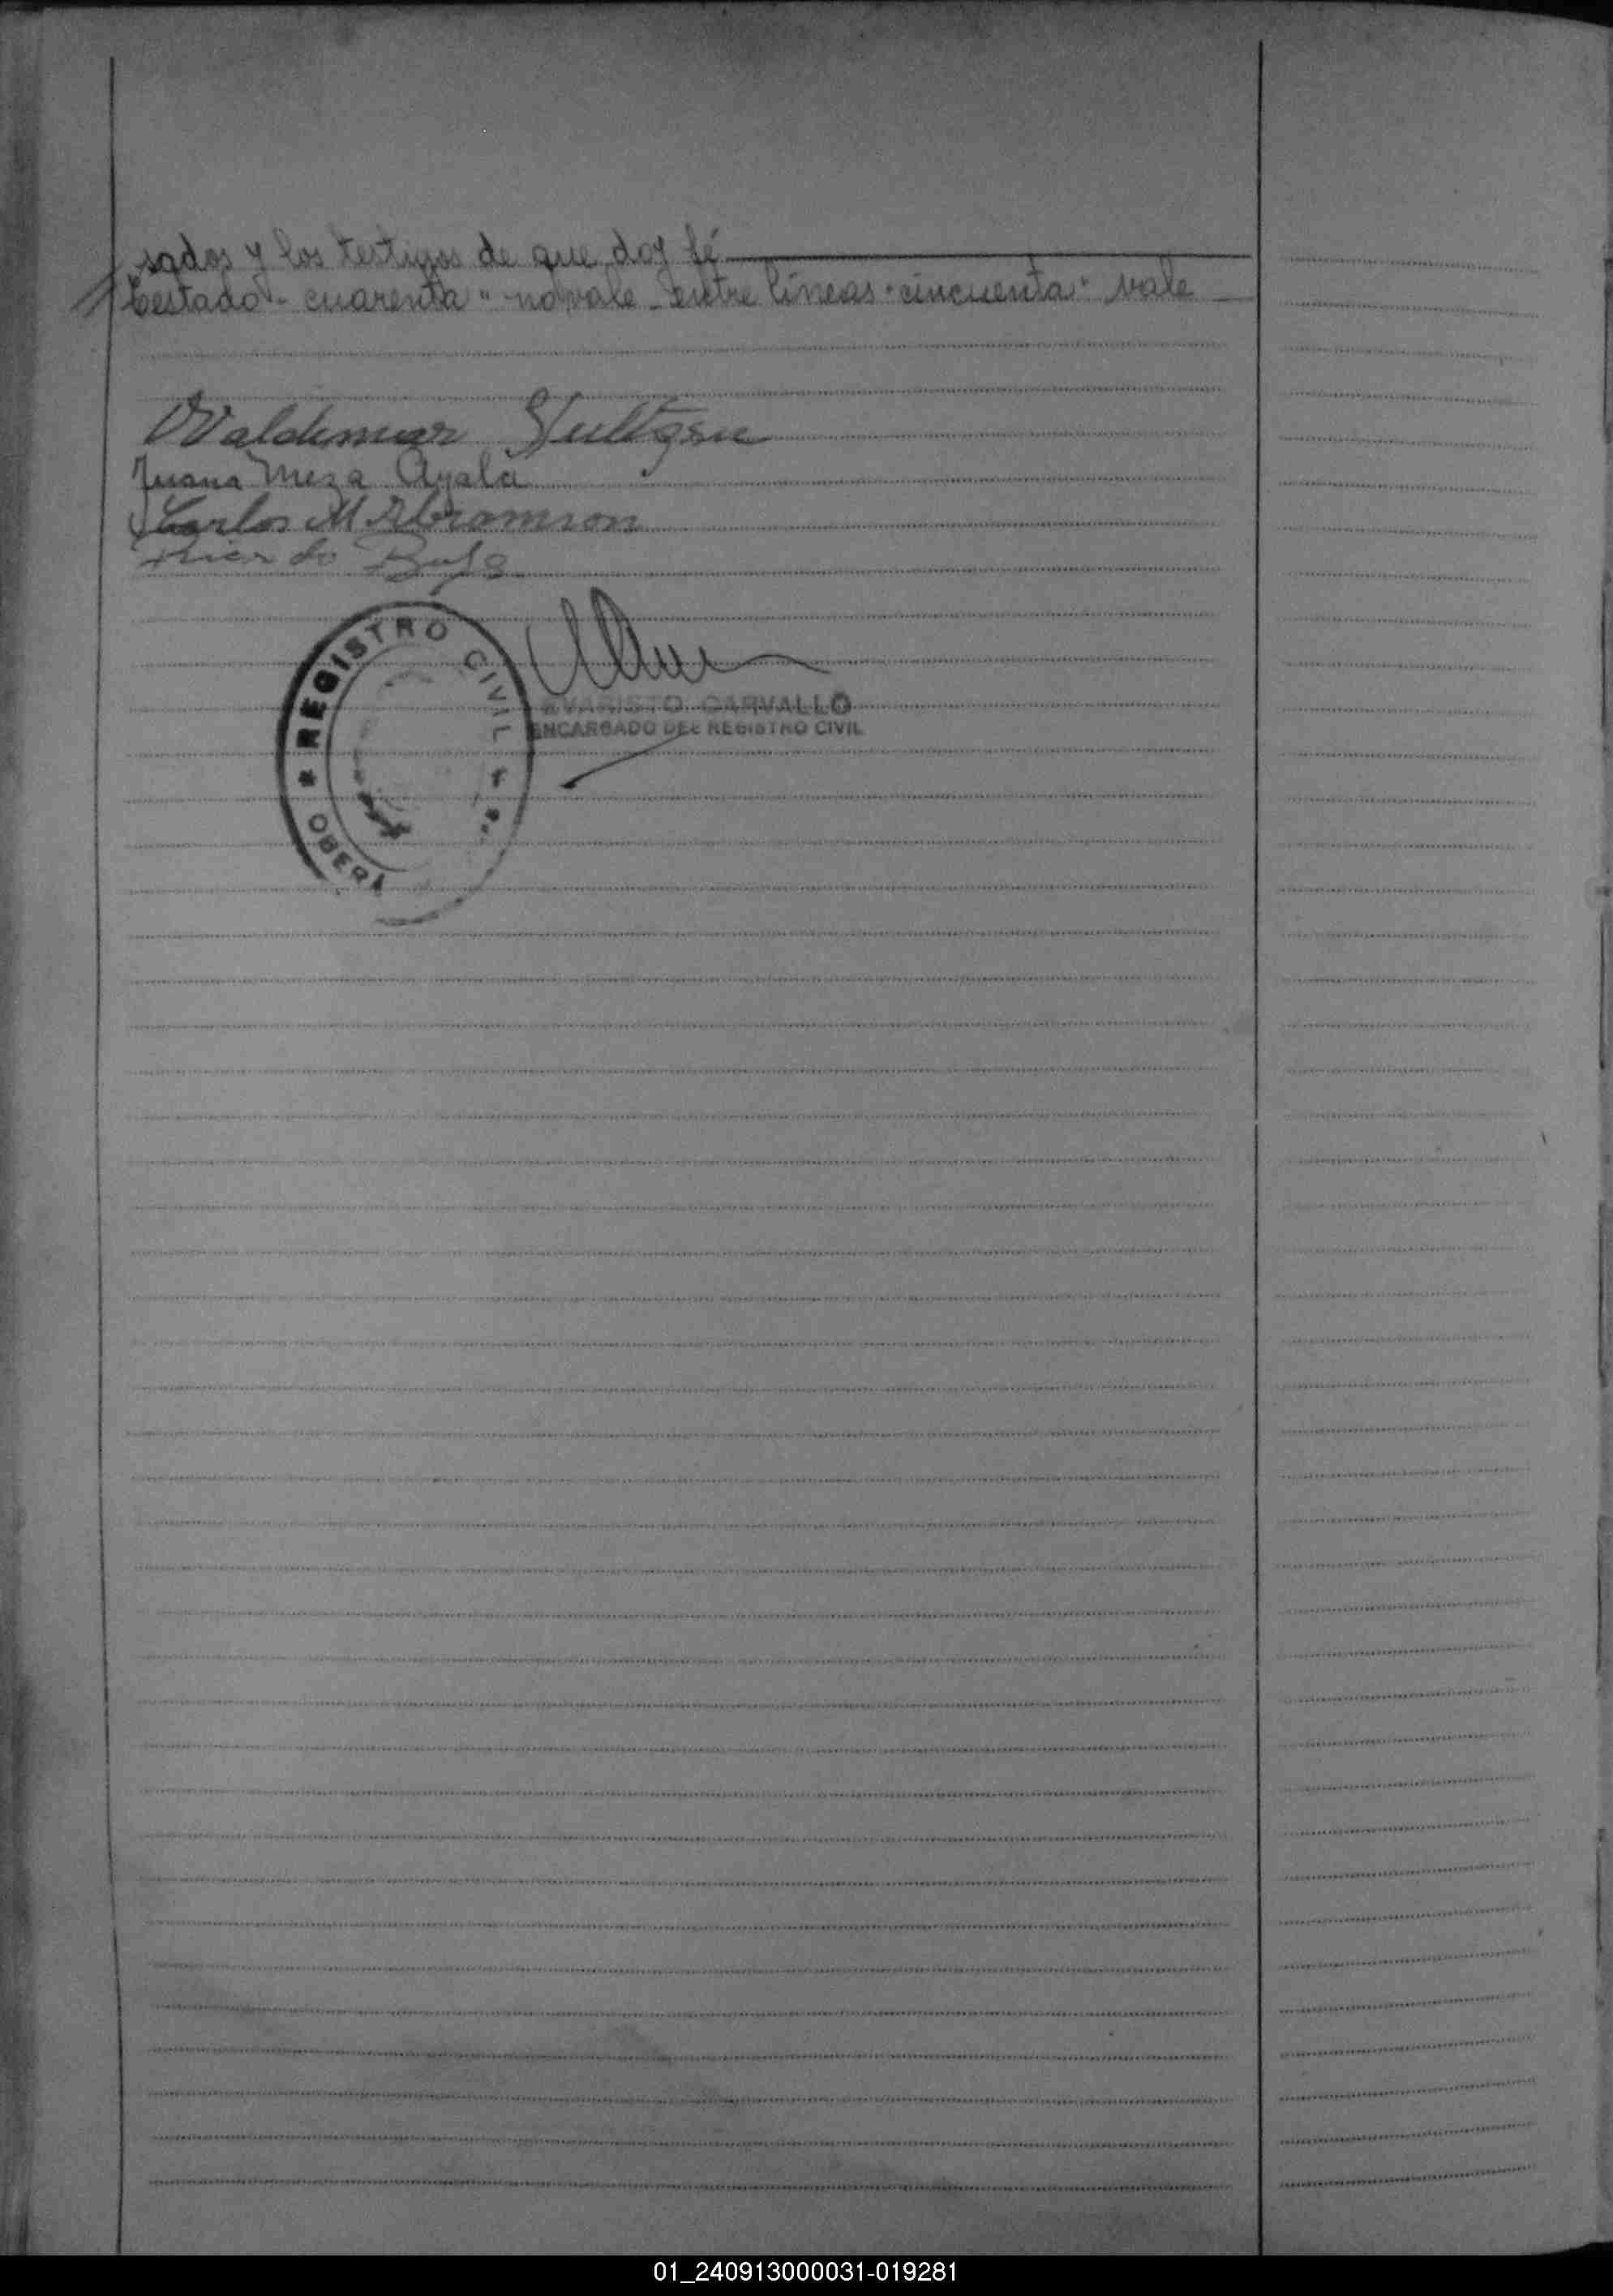 sados y los testigos de que doy fé
Testado "cuarenta" no vale - entre líneas "cincuenta" vale
Waldemar
Juana Meza Ayala
Carlos M Abramson
Ricardo
REGISTRO CIVIL
OBERA
EVARISTO CARVALLO
ENCARGADO DEL REGISTRO CIVIL
01_240913000031-019281